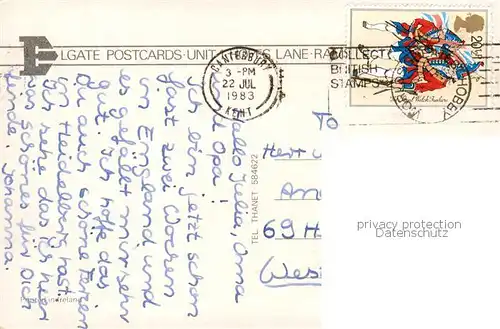 ELGATE POSTCARDS·UNIT S LANE·RA
CANTERBURY
3-PM
22 JUL
1983
KENT
COLLECT
BRITISH
STAMPS
HOBBY
20½P
Welch Fusiliers
Hallo Julia, Oma
und Opa!
Ich bin jetzt schon
fast zwei Wochen
in England und
es gefällt mir sehr
gut. Ich hoffe das
Du auch schöne Ferien
in Heidelberg hast.
Ich sehe das ich hier
was schönes für Dich
finde. Johanna.
TEL THANET 584622
Printed in Ireland
TO
Herr
An
69 H
Wes
privacy protection
Datenschutz